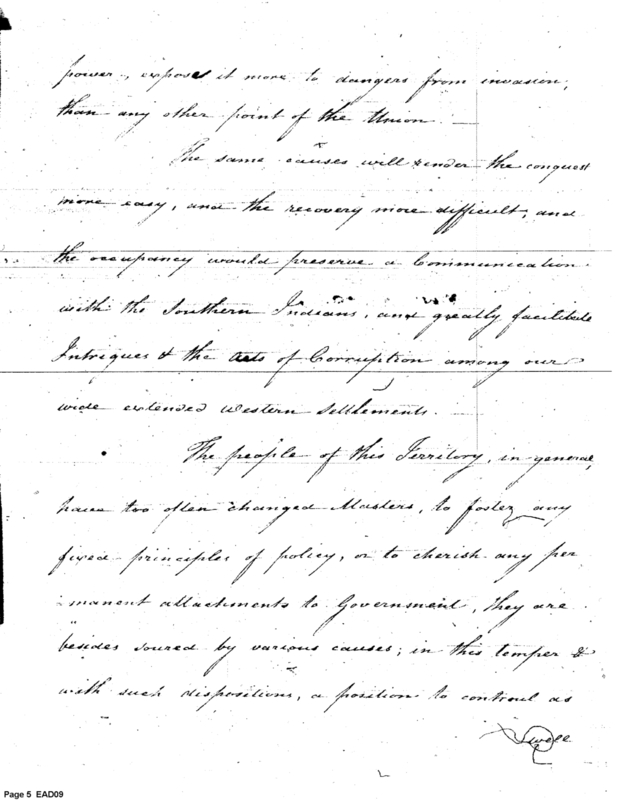 power, expose it more to dangers from invasion,
than any other point of the Union.
The same causes will render the conquest
more easy, and the recovery more difficult, and
the occupancy would preserve a Communication
with the Southern Indians, and greatly facilitate
Intrigues & the acts of Corruption among our
wide extended western settlements.
The people of this Territory, in general,
have too often changed Masters, to foster any
fixed principles of policy, or to cherish any per
manent attachments to Government, they are
besides soured by various causes; in this temper &
with such dispositions, a position to controul as
well
Page 5 EAD09